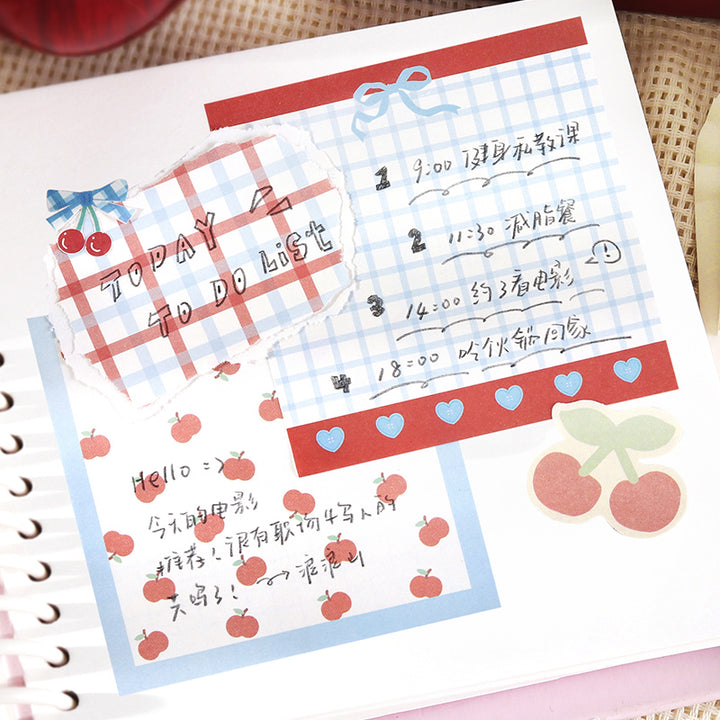 TODAY
TO DO LiST
1 9:00 健身私教课
2 11:30 减脂餐
3 14:00 约了看电影 !
4 18:00 伙锅回家
Hello =)
今天的电影
推荐！很有职场人的
了！→浪浪山